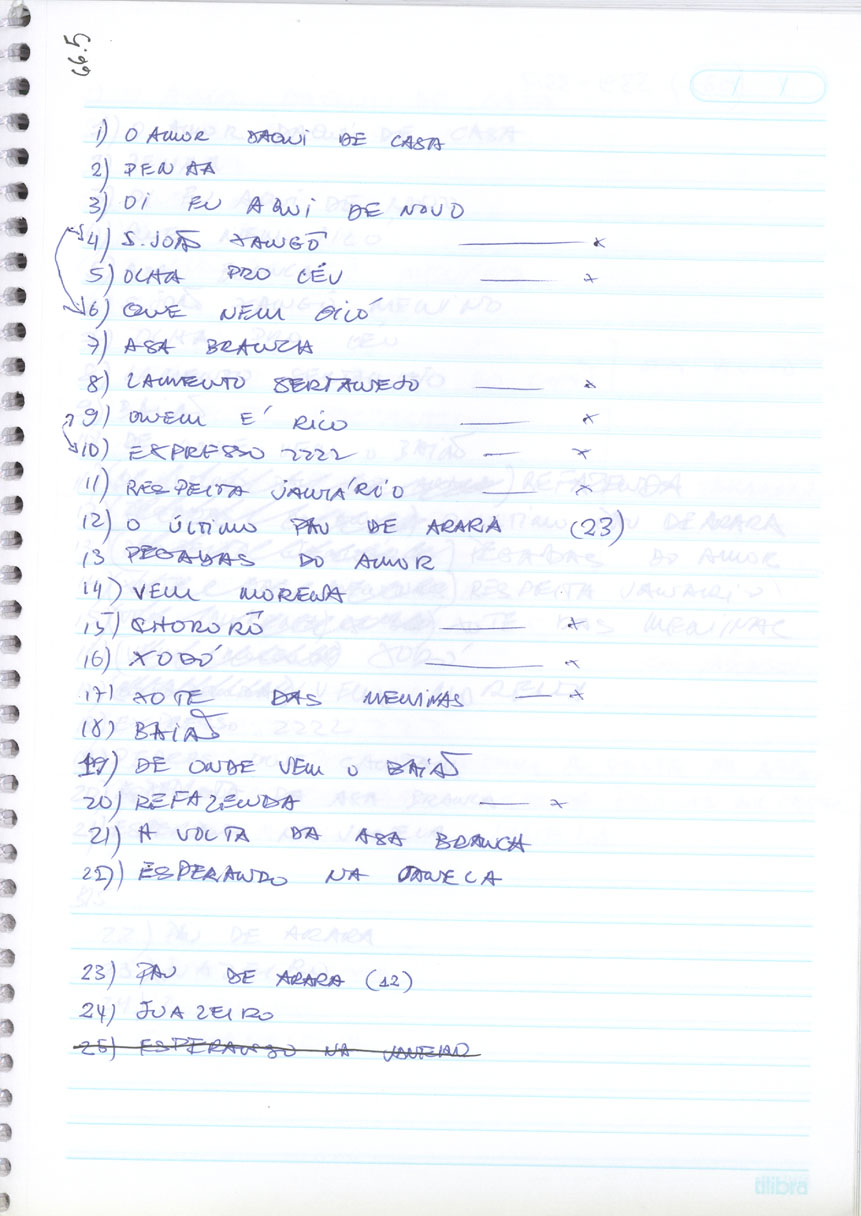 66.5
1) O AMOR DAQUI DE CASA
2) PENAA
3) OI EU AQUI DE NOVO
4) S. JOÃO XANGÔ ——— x
5) OLHA PRO CÉU ——— x
6) QUE NEM GILÓ
7) ASA BRANCA
8) LAMENTO SERTANEJO ——— x
9) QUEM É RICO ——— x
10) EXPRESSO 2222 — x
11) RESPEITA JANUÁRIO — x
12) O ÚLTIMO PAU DE ARARA (23)
13 PEGADAS DO AMOR
14) VEM MORENA
15) CHORORÔ ——— x
16) XODÓ ——— x
17) XOTE DAS MENINAS — x
18) BAIÃO
19) DE ONDE VEM O BAIÃO
20) REFAZENDA — x
21) A VOLTA DA ASA BRANCA
22) ESPERANDO NA JANELA
23) PAU DE ARARA (12)
24) JUAZEIRO
25) ESPERANDO NA
tilibra